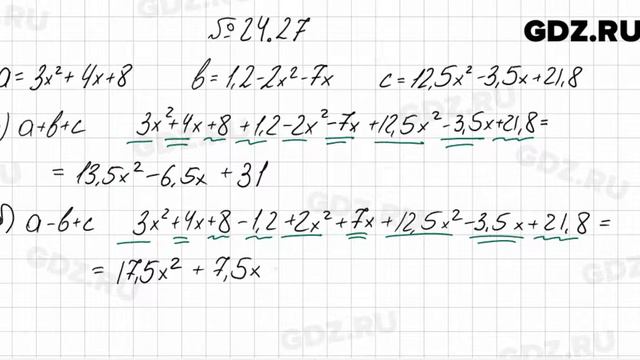 № 24.27
GDZ.RU
a = 3x² + 4x + 8 в = 1,2 - 2x² - 7x c = 12,5x² - 3,5x + 21,8
) a+в+c 3x² + 4x + 8 + 1,2 - 2x² - 7x + 12,5x² - 3,5x + 21,8 =
= 13,5x² - 6,5x + 31
б) a-в+c 3x² + 4x + 8 - 1,2 + 2x² + 7x + 12,5x² - 3,5x + 21,8 =
= 17,5x² + 7,5x
GDZ.RU
GDZ.RU
GDZ.RU